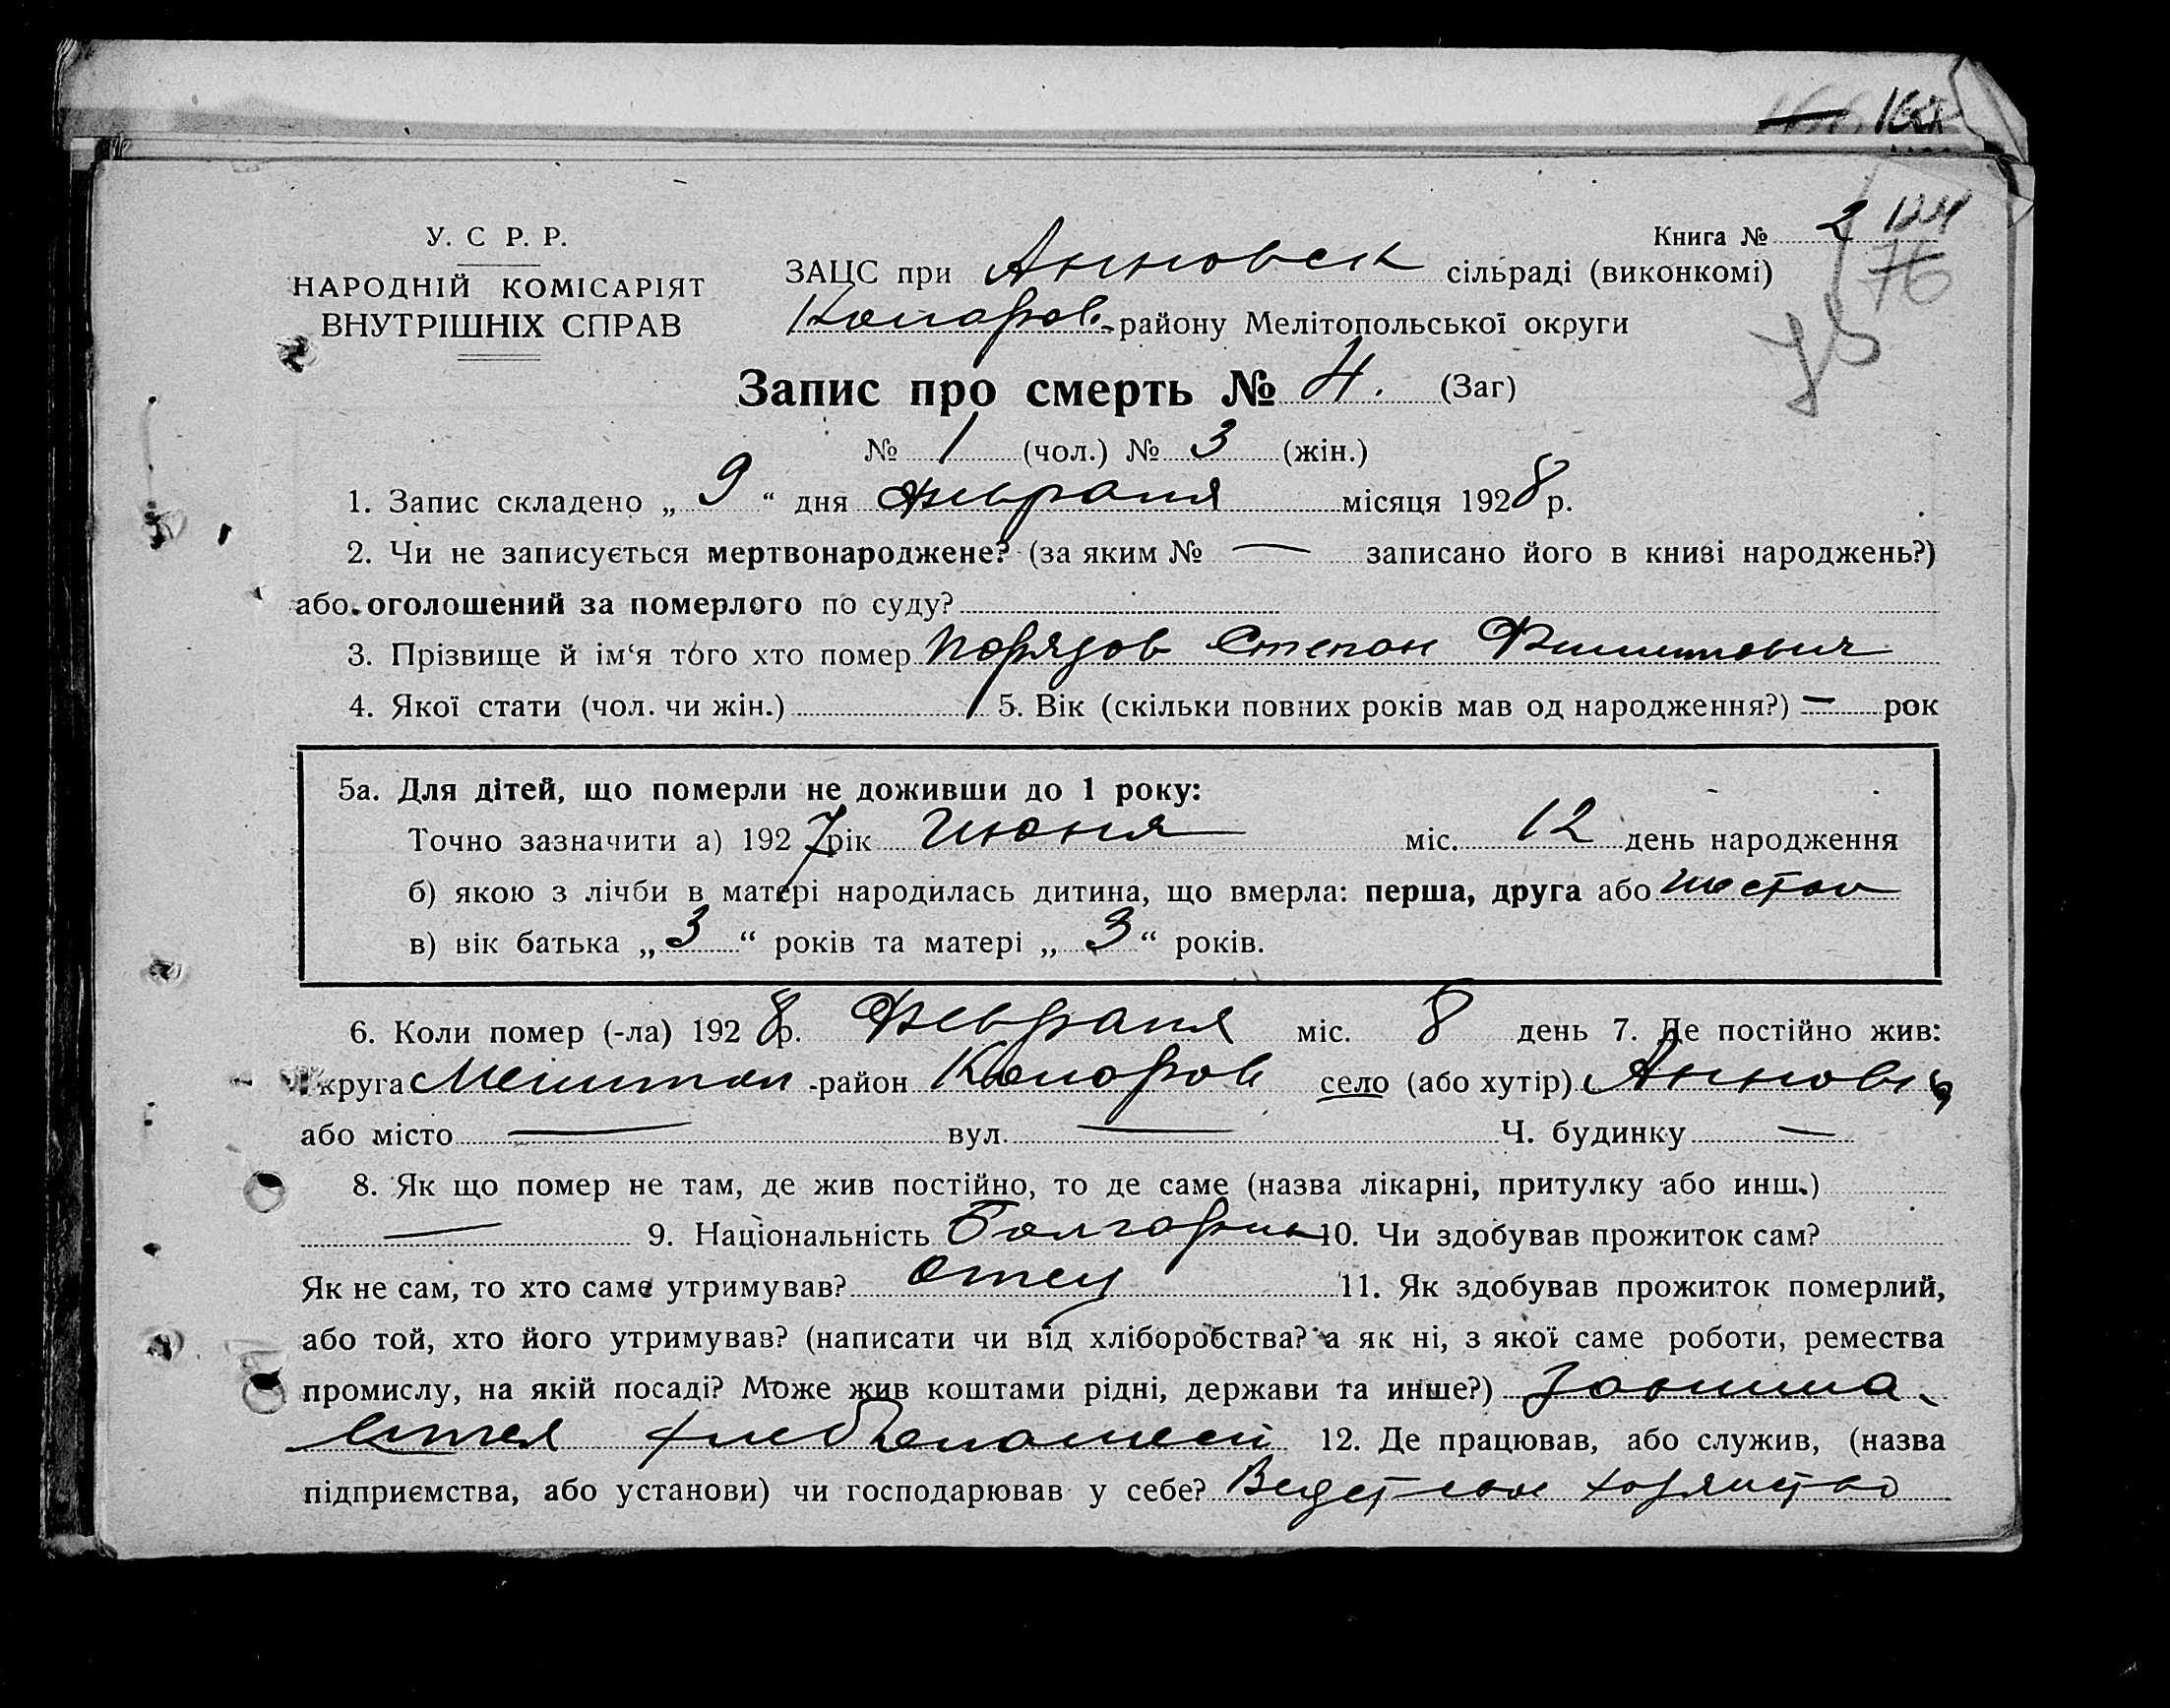 168
Книга № 2 124
76
У. С Р. Р.
НАРОДНІЙ КОМІСАРІЯТ
ВНУТРІШНІХ СПРАВ
ЗАЦС при Анновск сільраді (виконкомі)
Коларов. району Мелітопольської округи
Запис про смерть № 4. (Заг)
№ 1 (чол.) № 3 (жін.)
1. Запис складено „ 9 “ дня февраля місяця 1928 р.
2. Чи не записується мертвонароджене? (за яким № — записано його в книзі народжень?)
або оголошений за померлого по суду?
3. Прізвище й ім‘я того хто помер Степан Филиппович
4. Якої стати (чол. чи жін.) 5. Вік (скільки повних років мав од народження?) — рок
5а. Для дітей, що померли не доживши до 1 року:
Точно зазначити а) 1927 рік Июня міс. 12 день народження
б) якою з лічби в матері народилась дитина, що вмерла: перша, друга або шестая
в) вік батька „ 3 “ років та матері „ 3 “ років.
6. Коли помер (-ла) 1928 р. Февраля міс. 8 день 7. Де постійно жив:
округа Мелитоп -район Коларов село (або хутір)
або місто — вул. — Ч. будинку —
8. Як що помер не там, де жив постійно, то де саме (назва лікарні, притулку або инш.)
— 9. Національність 10. Чи здобував прожиток сам?
Як не сам, то хто саме утримував? Отец 11. Як здобував прожиток померлий,
або той, хто його утримував? (написати чи від хліборобства? а як ні, з якої саме роботи, ремества
промислу, на якій посаді? Може жив коштами рідні, держави та инше?) Занима
ется хлебопашеством 12. Де працював, або служив, (назва
підприємства, або установи) чи господарював у себе? Ведет свое хозяйство